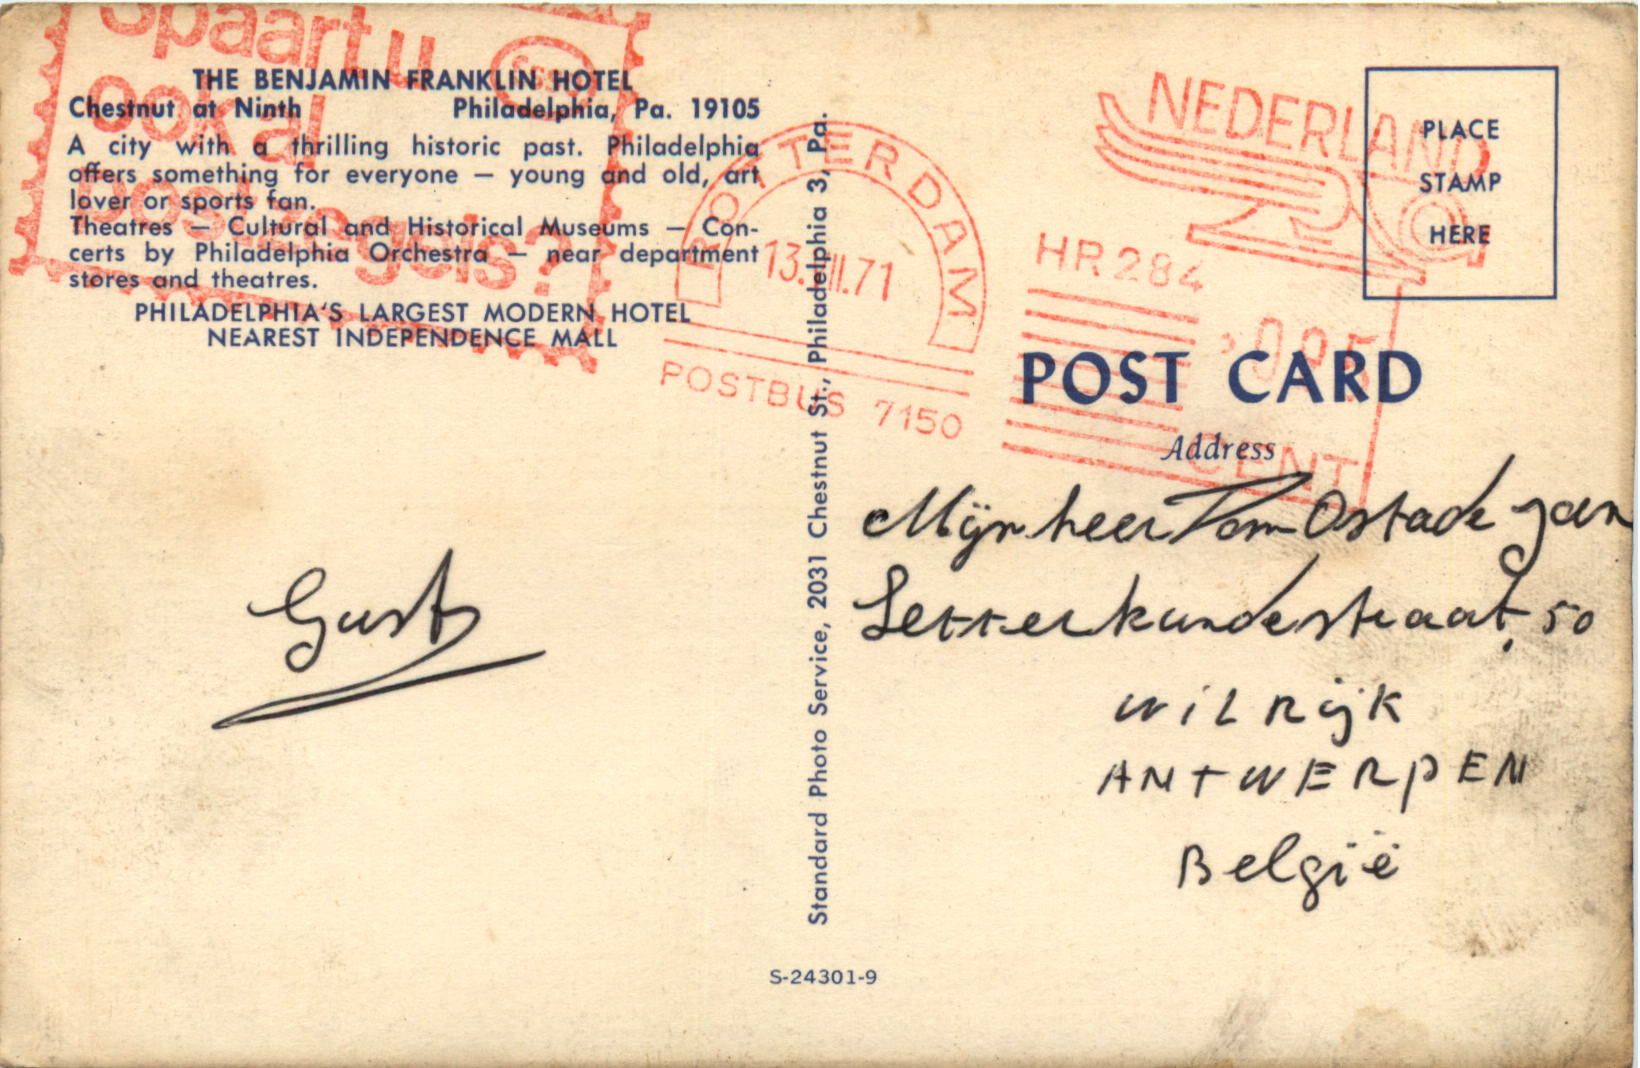 Spaart u
ook al
postzegels?
THE BENJAMIN FRANKLIN HOTEL
Chestnut at Ninth Philadelphia, Pa. 19105
A city with a thrilling historic past. Philadelphia
offers something for everyone — young and old, art
lover or sports fan.
Theatres — Cultural and Historical Museums — Con-
certs by Philadelphia Orchestra — near department
stores and theatres.
PHILADELPHIA'S LARGEST MODERN HOTEL
NEAREST INDEPENDENCE MALL
Gust
Standard Photo Service, 2031 Chestnut St., Philadelphia 3, Pa.
S-24301-9
ROTTERDAM
POSTBUS 7150
NEDERLAND
HR 284
CENT
PLACE
STAMP
HERE
POST CARD
Address
Mijnheer Van Ostade Jan
Letterkundestraat, 50
WILRIJK
ANTWERPEN
België